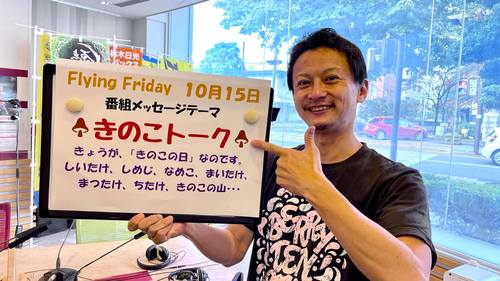 Flying Friday 10月15日
番組メッセージテーマ
きのこトーク
きょうが、「きのこの日」なのです。
しいたけ、しめじ、なめこ、まいたけ、
まつたけ、ちたけ、きのこの山・・・
栃木日光
BERRY
TEN